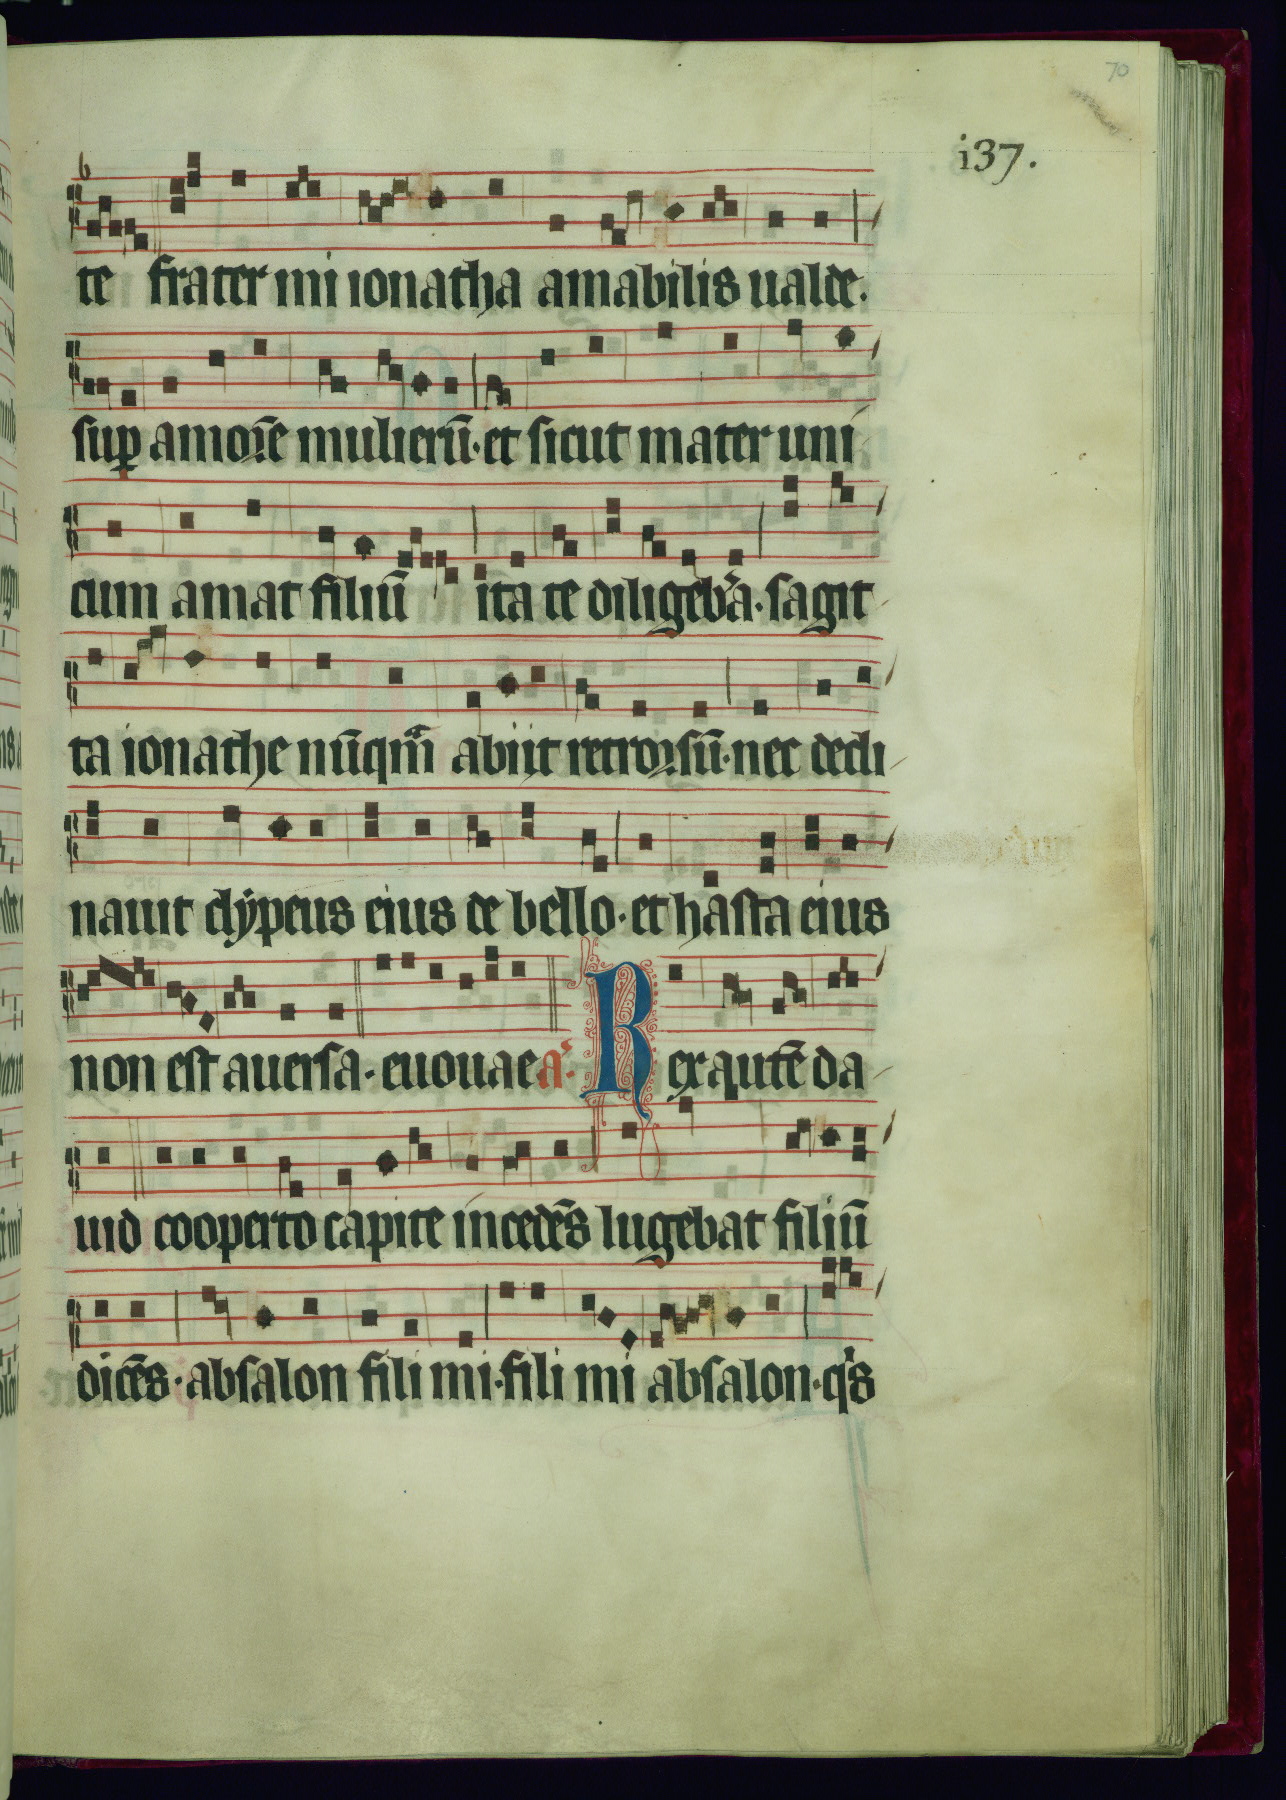 70
i37.
te frater mi ionatha amabilis ualde.
sup amorē mulierū. et sicut mater uni
cum amat filiū ita te diligebā. sagit
ta ionathe nūqm̄ abiit retrorsū. nec decli
nauit clẏpeus eius de bello. et hasta eius
non est auersa. euouae a̓. Rex autē da
uid cooperto capite incedēs lugebat filiū
dicēs. absalon fili mi. fili mi absalon. qs